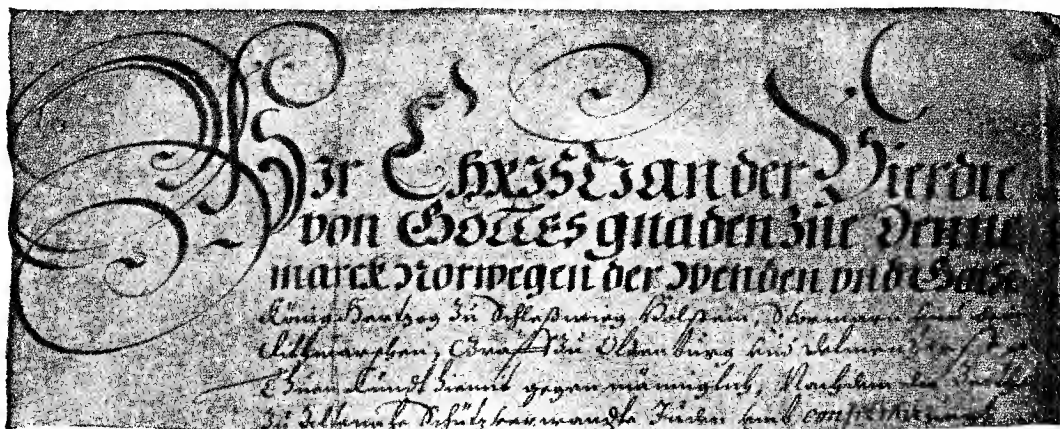 Wir CHRISTIan der Vierdte
von GOTTES gnaden zue Denne
marck Norwegen der Wenden vnd Gotte
König Hertzog Zu Schleßwieg Holstein, Stormarn vnd der
Dithmarschen, Graff Zu Oldenburg vnd Delmenhorst
Thuen kundt hiemit gegen männiglich, Nachdem die
zu Altena Schutzverwandte Juden